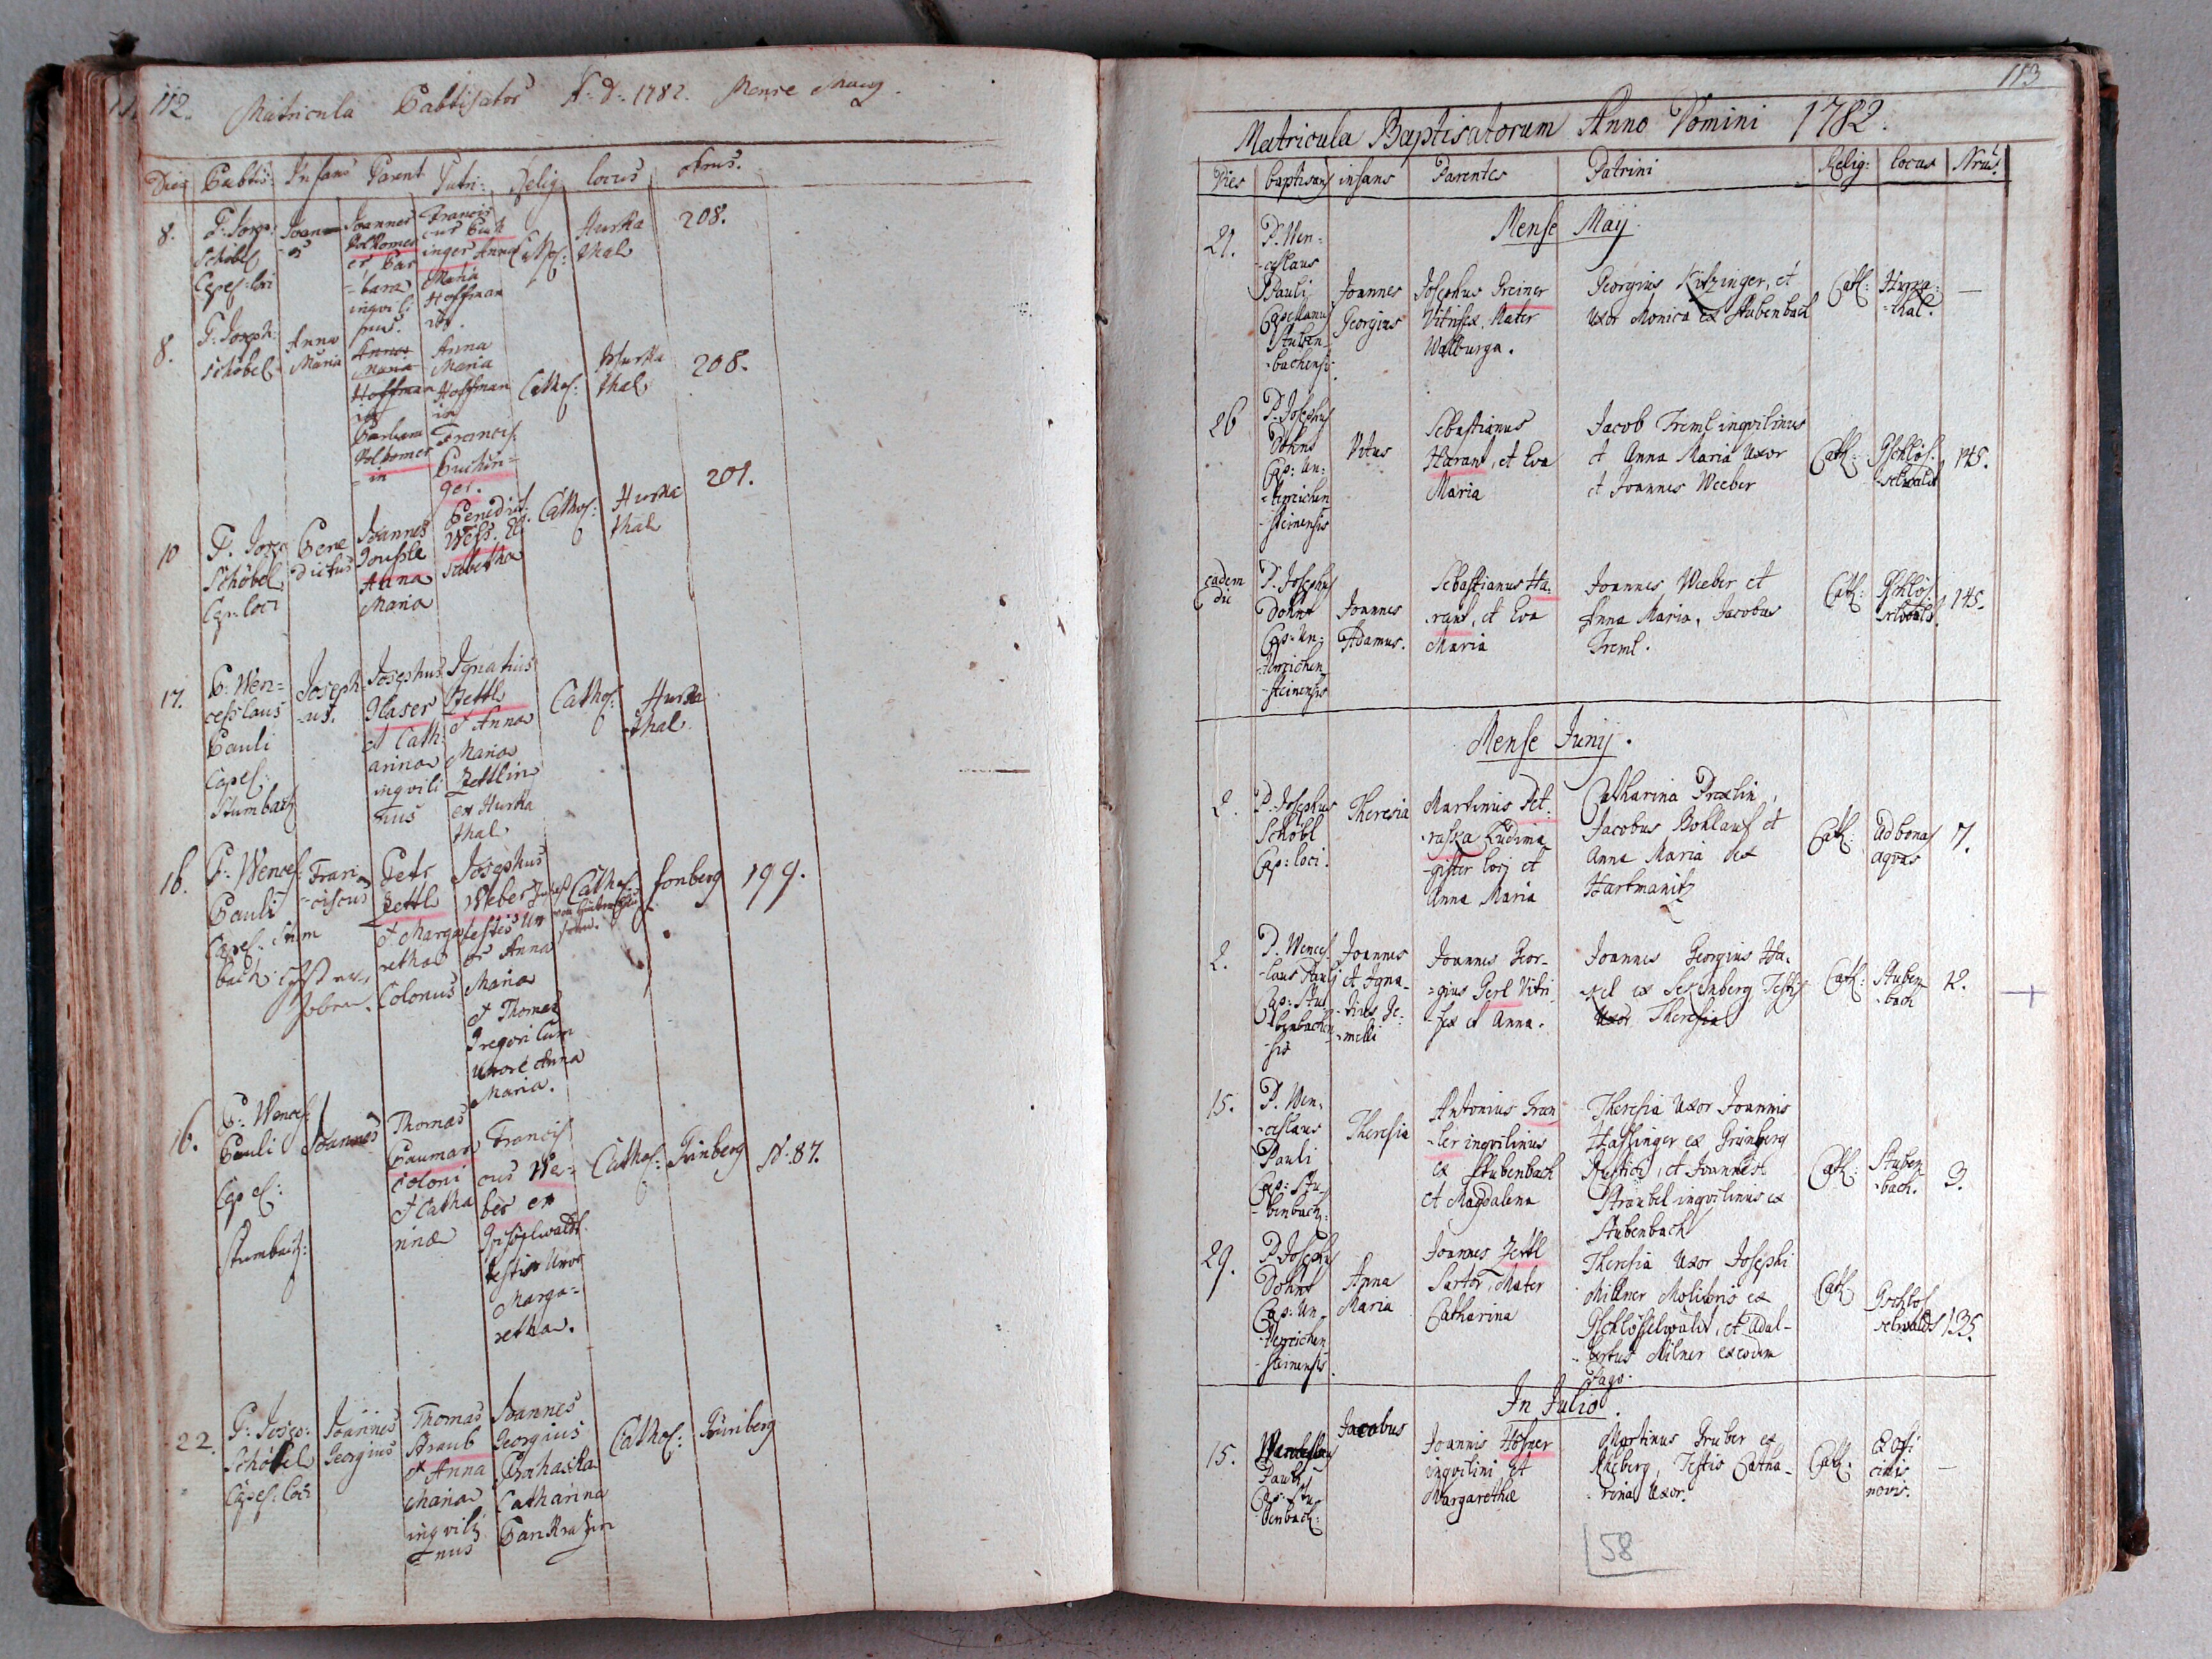 112. Matricula Babtisator A: D: 1782. Mense May.
Dies Babtis: Infans Parent Patri: Relig locus Nrus.
8. P: Josep: Schöbl Capel: loci
Joannes
Joannes Volkomer et Barbara inqvilinus.
Franciscus Buchinger Anna Maria Hoffmanin.
Cathol: Hurkathal 208.
8. P: Joseph: Schöbel
Anna Maria
Barbara Volkomerin
Anna Maria Hoffmanin Francis: Buchinger.
Cathol: Hurkathal 208.
10 P. Josep Schöbel Cap: loci
Benedictus
Joannes Anna Maria
Benedict: Weis. Elisabetha
Cathol: Hurkathal 201.
17. P: Wenceslaus Pauli Capel: Stumbach
Josephus.
Josephus Glaser et Catharina inqvilinus
Ignatius Zettl et Anna Maria Zettlin ex Hurkathal
Cathol: Hurkathal
16. P: Wencesl Pauli Capel: Stumbach
Franciscus
Petr Zettl et Margaretha Colonus
Josephus Weber testis Uxor Anna Maria et Thomas Gregori cum uxore Anna Maria.
Cathol: 199.
16. P: Wencesl Pauli Capel: Stumbach:
Joannes
Thomas Baumar coloni et Catharinæ
Franciscus Weber ex testis Uxor Margaretha.
Cathol: Grinberg N. 87.
22. P: Josep: Schöbel Capel: loci
Joannes Georgius
Thomas Straub et Anna Maria inqvilinus
Joannes Georgius Prohaska Catharina
Cathol: Grünberg
113
Matricula Baptisatorum Anno Domini 1782.
Dies baptisans infans Parentes Patrini Relig: locus Nrus.
Mense Maij.
21. P. Wenceslaus Pauli Capellanus Stubenbachensis
Joannes Georgius
Josephus Greiner Vitrifex, Mater Walburga.
Georgius Kitzinger, et Uxor Monica ex Stubenbach
Cath: Hurkathal. —
26 P. Josephus Dohnt Cap: Unterreichensteinensis
Vitus
Sebastianus Harant, et Eva Maria
Jacob Treml inqvilinus et Anna Maria Uxor et Joannes Weeber
Cath: Gschlösselwald 145.
eadem die P. Josephus Dohnt Cap: Unterreichensteinensis
Joannes Adamus.
Sebastianus Harant, et Eva Maria
Joannes Weeber et Anna Maria, Jacobus Treml.
Cath: Gschlösselwald 145.
Mense Junij.
2. P. Josephus Schöbl Cap: loci.
Theresia
Martinus Petraska Ludimagister loci et Anna Maria
Catharina Drexlin, Jacobus Bohlauf et Anna Maria ex Hartmanitz
Cath: Ad bonas aqvas 7.
2. P. Wenceslaus Pauli Cap: Stubenbachensis
Joannes et Ignatius Gemelli
Joannes Georgius Gerl Vitrifex et Anna.
Joannes Georgius Testis Uxor Theresia
Cath: Stubenbach 12.
15. P. Wenceslaus Pauli Cap: Stubenbach:
Theresia
Antonius inqvilinus ex Stubenbach et Magdalena
Theresia Uxor Joannis Haslinger ex Grünberg Rustici, et Joannes Straubel inqvilinus ex Stubenbach
Cath: Stubenbach. 3.
29. P. Josephus Dohnt Cap: Unterreichensteinensis.
Anna Maria
Joannes Zettl Sartor, Mater Catharina
Theresia Uxor Josephi Millner Molitoris ex Gschlösselwald, et Adalbertus Milner ex eodem Pago.
Cath Gschlosselwald 135.
In Julio.
15. Wenceslaus Pauli Cap: Stubenbach:
Jacobus
Joannis Hofner inqvilini et Margarethæ
Martinus Gruber ex Testis Catharina Uxor.
Cath. —
58